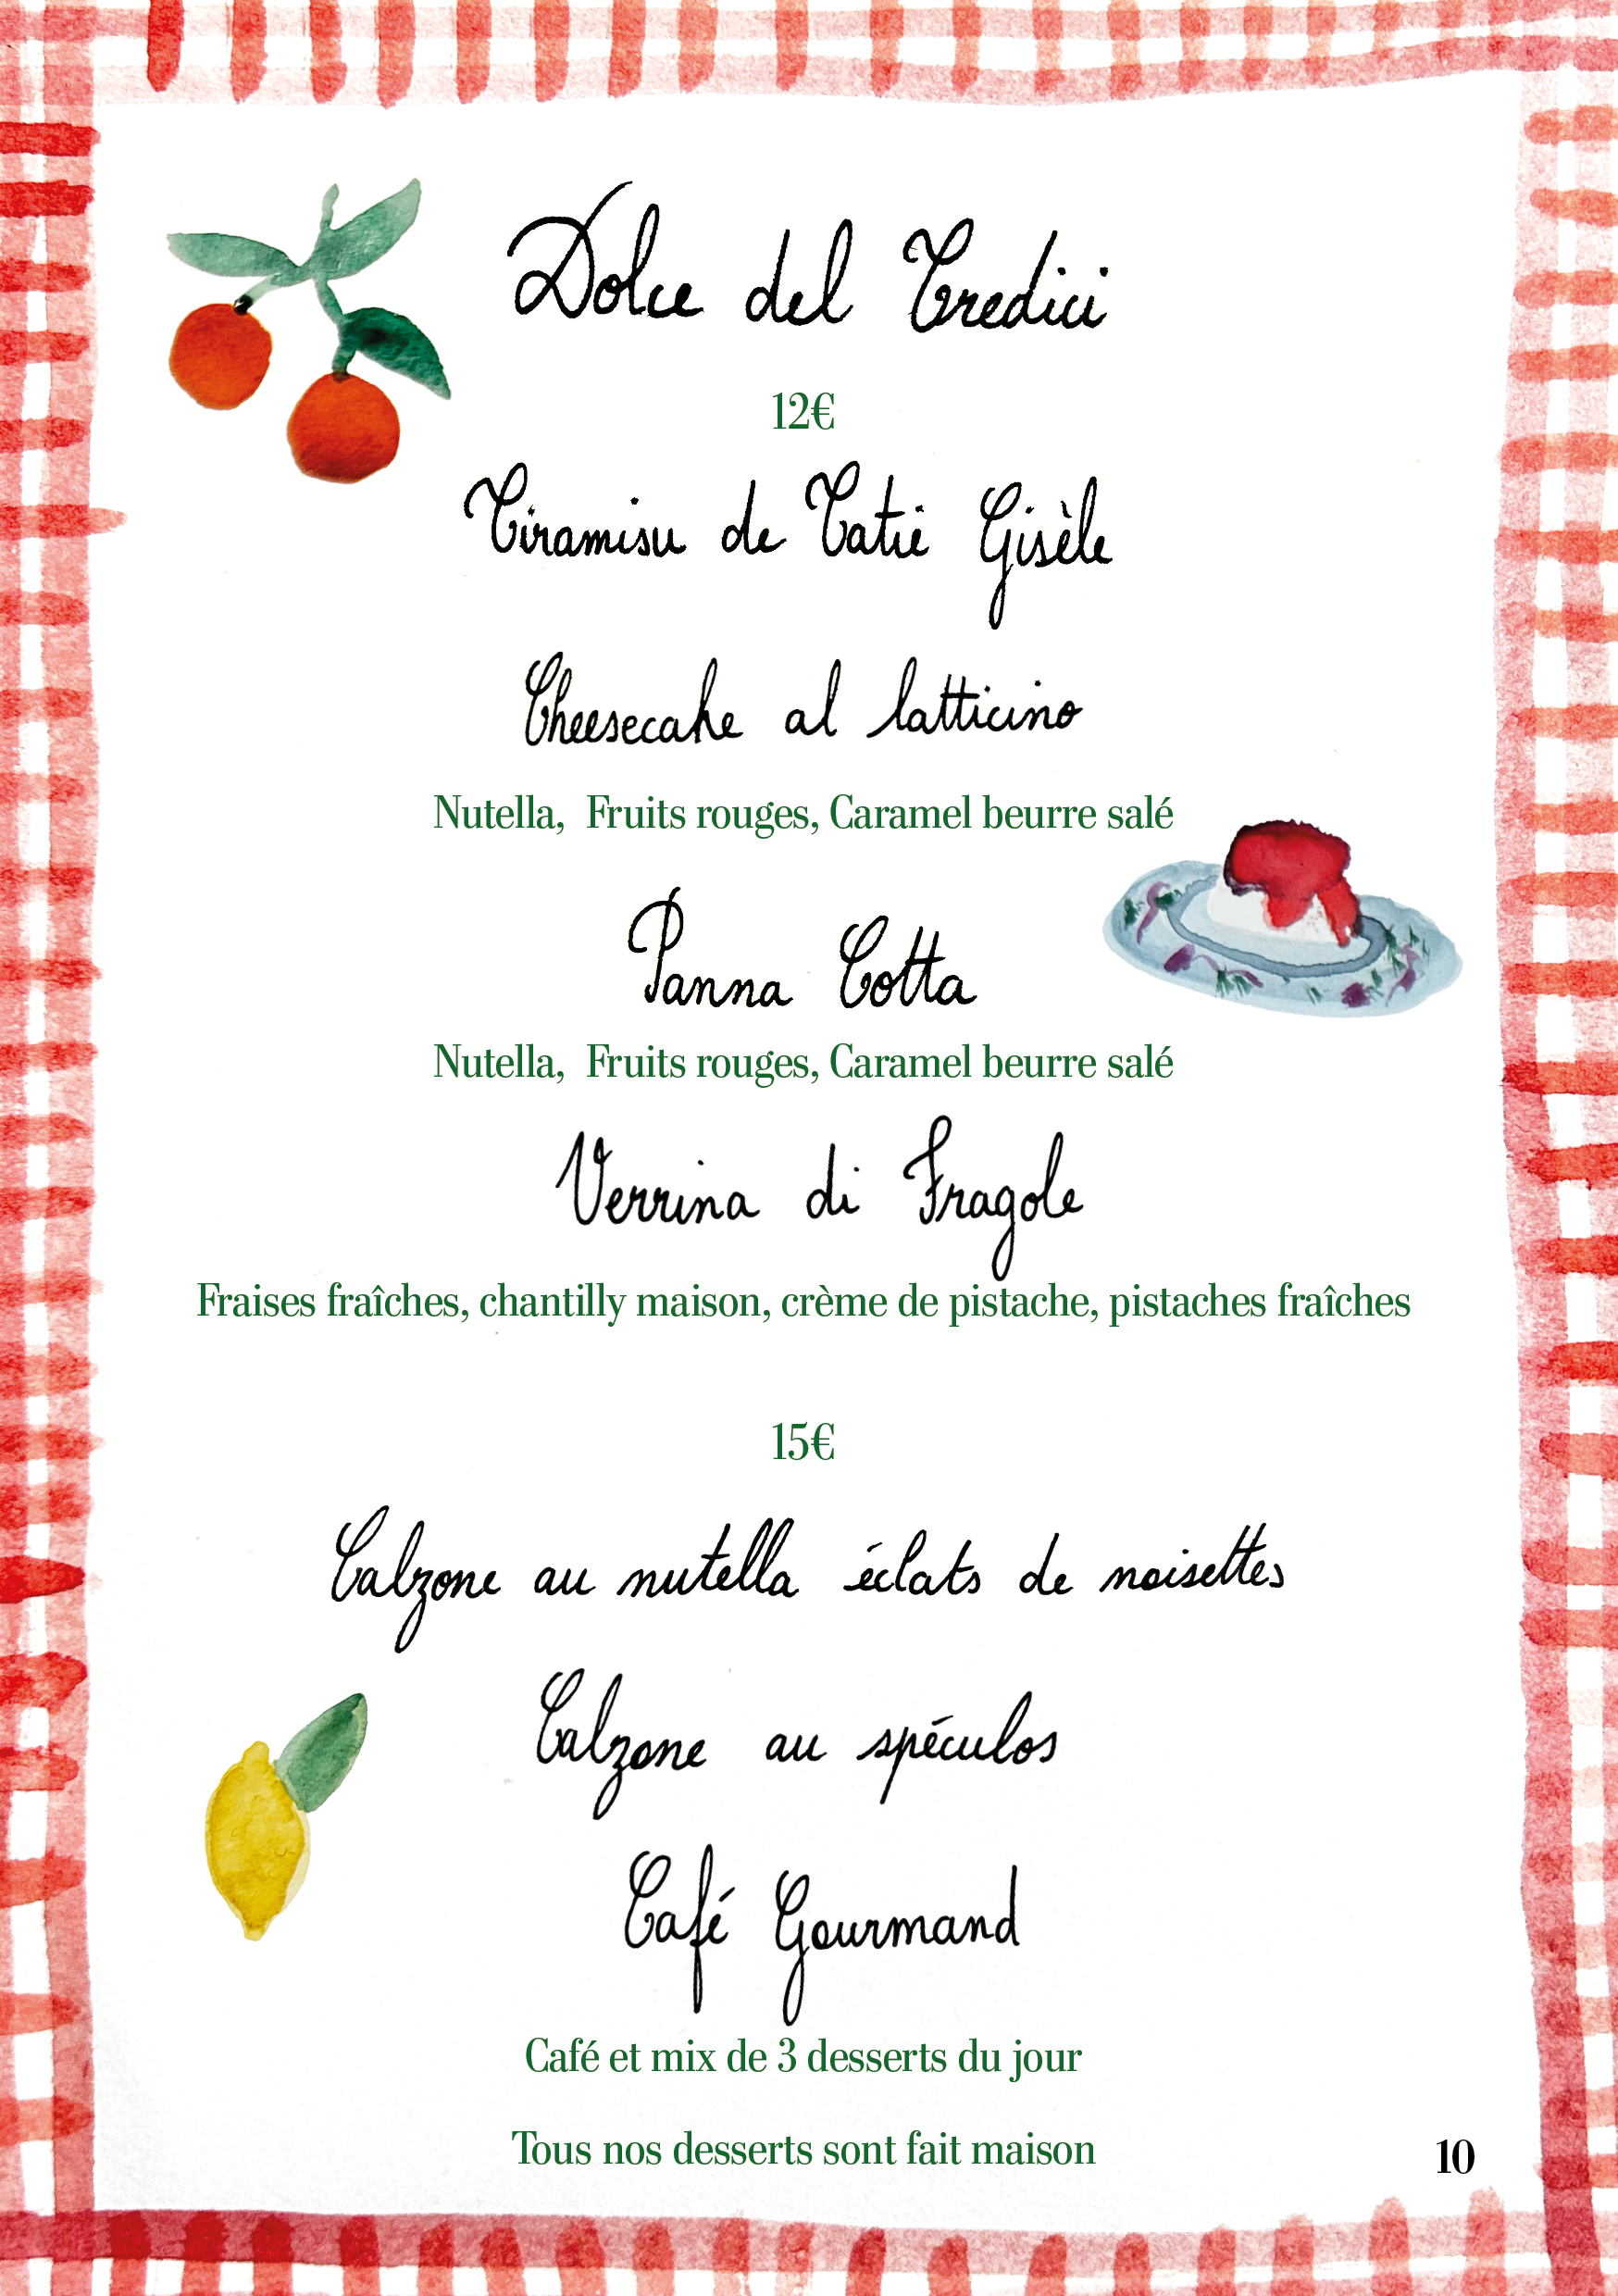 Dolce del Tredici
12€
Tiramisu de Tatie Gisèle
Cheesecake al latticino
Nutella, Fruits rouges, Caramel beurre salé
Panna Cotta
Nutella, Fruits rouges, Caramel beurre salé
Verrina di Fragole
Fraises fraîches, chantilly maison, crème de pistache, pistaches fraîches
15€
Calzone au nutella éclats de noisettes
Calzone au spéculos
Café Gourmand
Café et mix de 3 desserts du jour
Tous nos desserts sont fait maison
10